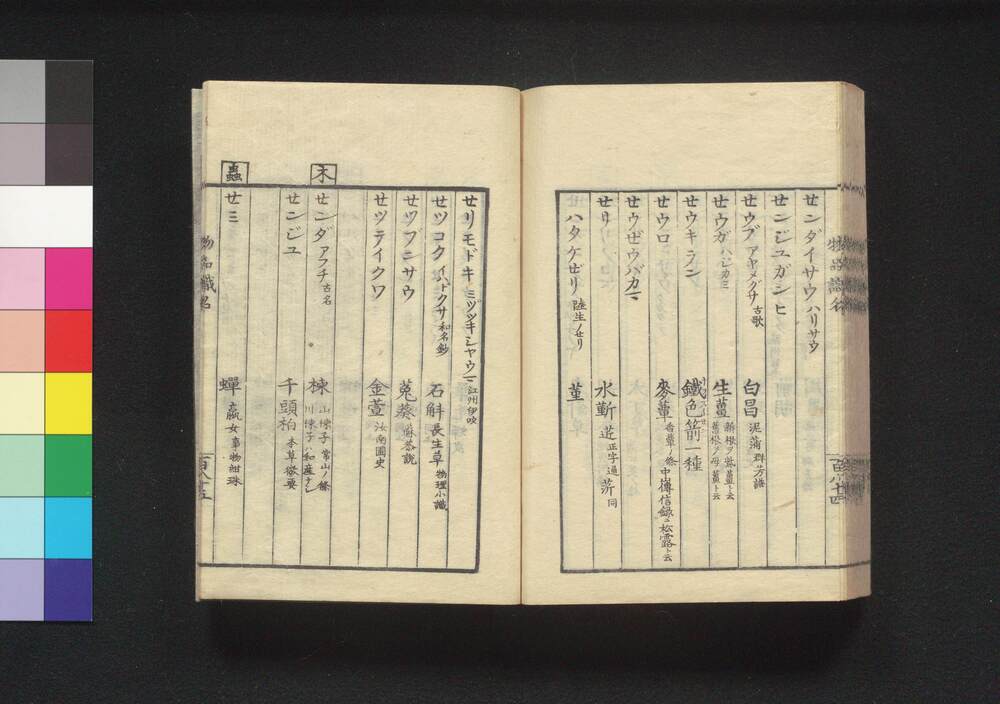 センダイサウ ハリサウ
センジユガンヒ
セウブ アヤメグサ 古歌 白昌 泥蒲 群芳譜
セウガ ハジカミ 生薑 新根ヲ紫薑ト云 舊根ヲ母薑ト云
セウキラン 鐵色箭一種
セウロ 麥蕈 香蕈ノ條 中山傳信録ニ松露ト云
セウゼウバカマ
セリ 水斳 正字通 同
ハタケゼリ 陸生ノセリ 菫
物品識名
百八十四
セリモドキ ミヅツキシヤウマ 江州伊吹
セツコク イハトクサ 和名鈔 石斛 長生草 物理小識
セツブンサウ 菟葵 蘇恭説
セツテイクワ 金萱 汝南圃史
木
センダ アフチ 古名 楝 山楝子 常山ノ條 川楝子ハ和産ナシ
センジユ 千頭栢 本草彙要
蟲
セミ 蟬 齊女 事物紺珠
物品識名
百八十五